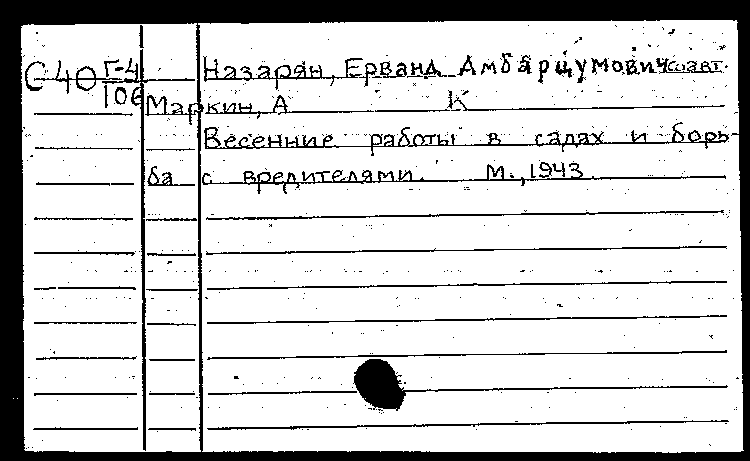 С40 Г-4/106 Назарян, Ерванд Амбарцумович соавт.
Маркин, А К
Весенние работы в садах и борь-
ба с вредителями. М., 1943